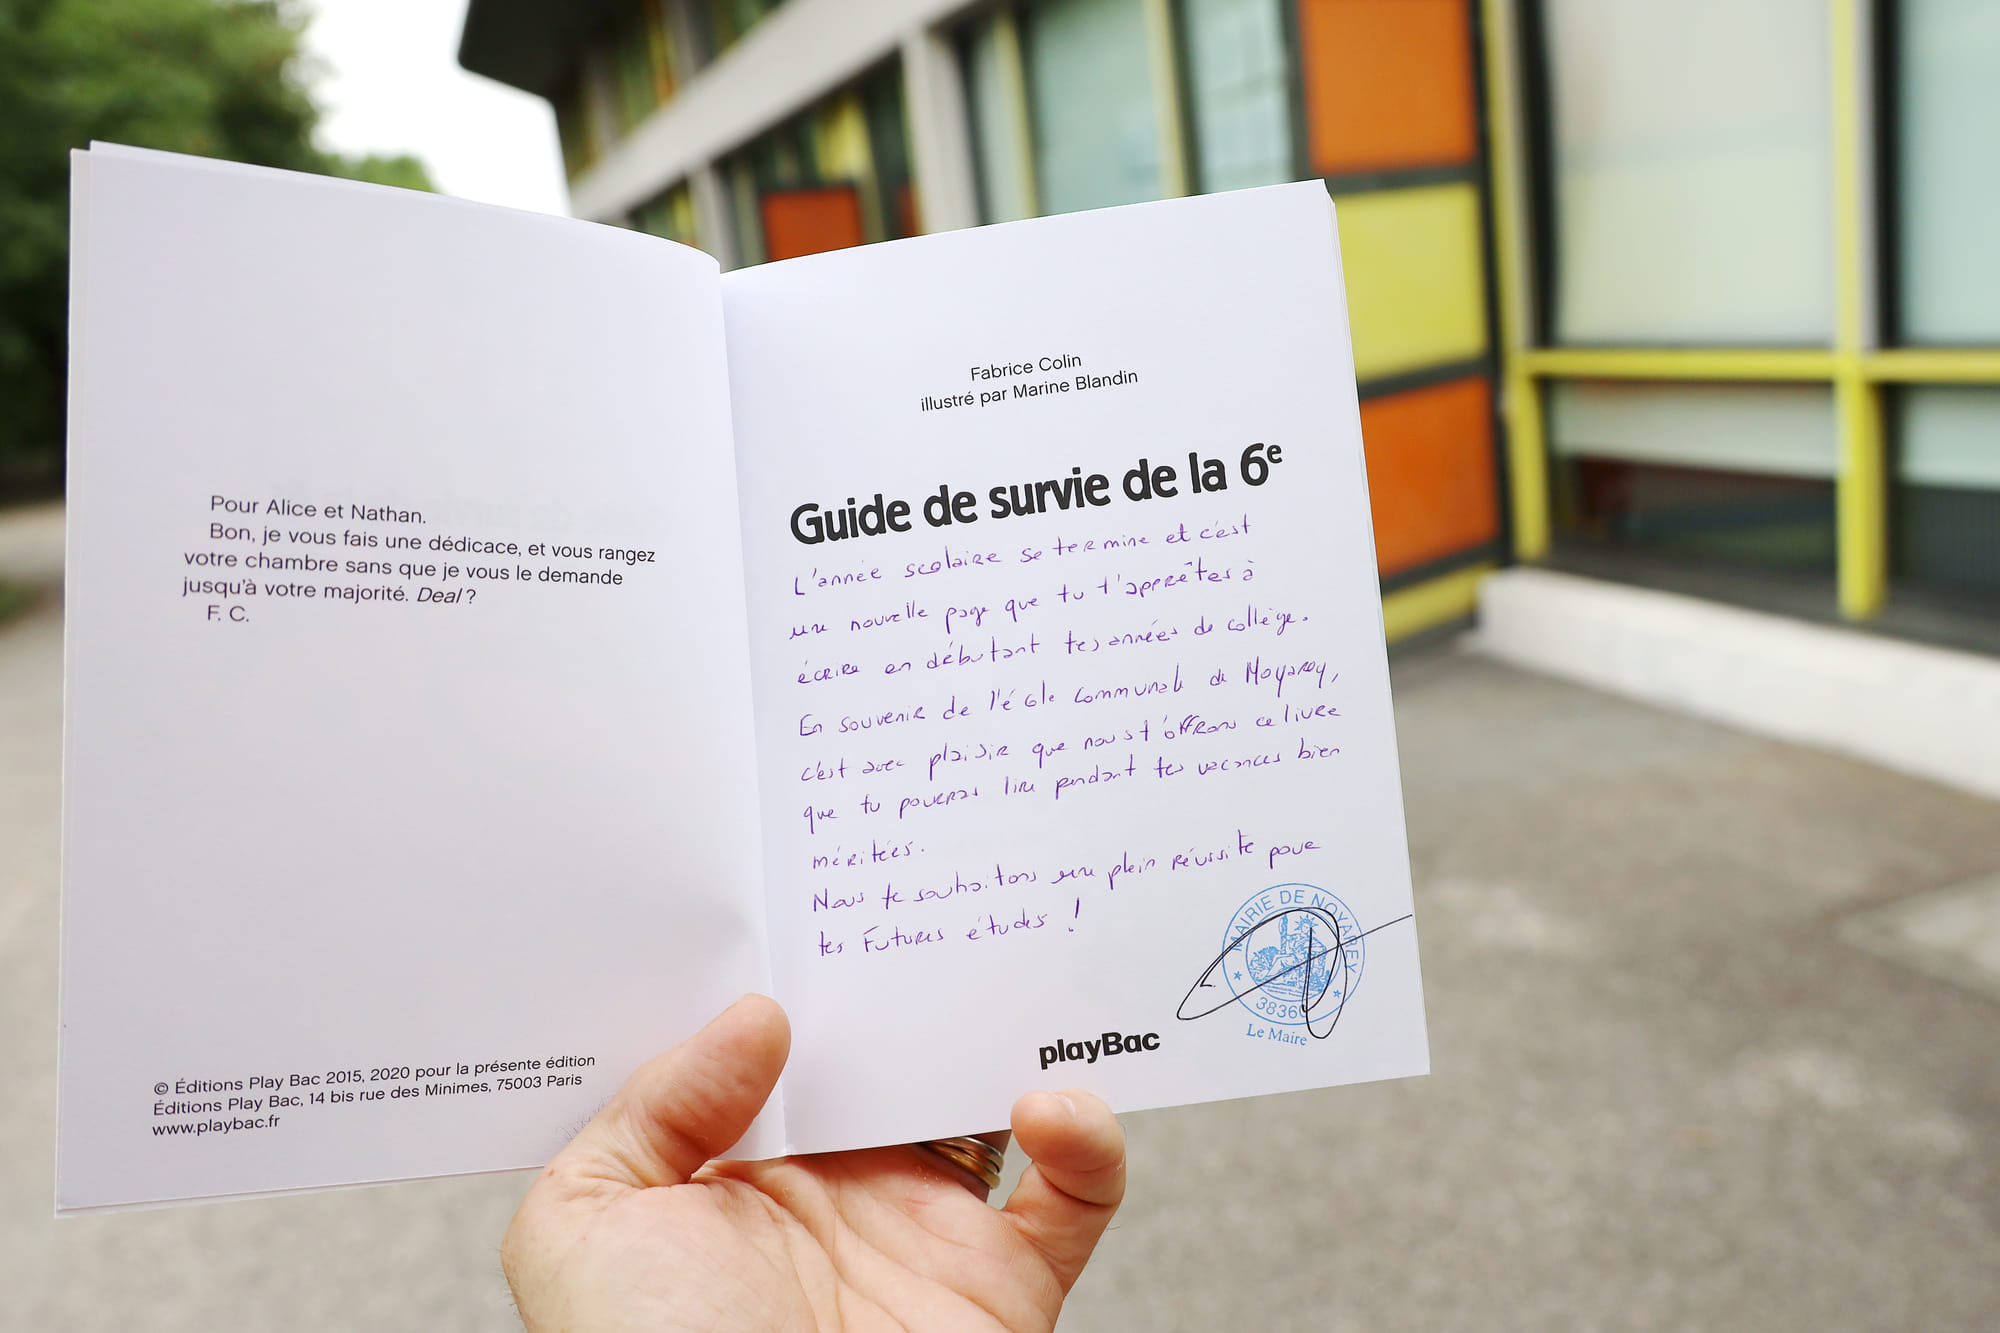 Pour Alice et Nathan.
Bon, je vous fais une dédicace, et vous rangez
votre chambre sans que je vous le demande
jusqu'à votre majorité. Deal ?
F. C.
© Éditions Play Bac 2015, 2020 pour la présente édition
Éditions Play Bac, 14 bis rue des Minimes, 75003 Paris
www.playbac.fr
Fabrice Colin
illustré par Marine Blandin
Guide de survie de la 6e
L'année scolaire se termine et c'est
une nouvelle page que tu t'apprêtes à
écrire en débutant tes années de collège.
En souvenir de l'école communale de Noyarey,
c'est avec plaisir que nous t'offrons ce livre
que tu pourras lire pendant tes vacances bien
méritées.
Nous te souhaitons une plein réussite pour
tes futures études !
MAIRIE DE NOYAREY
38360
Le Maire
playBac